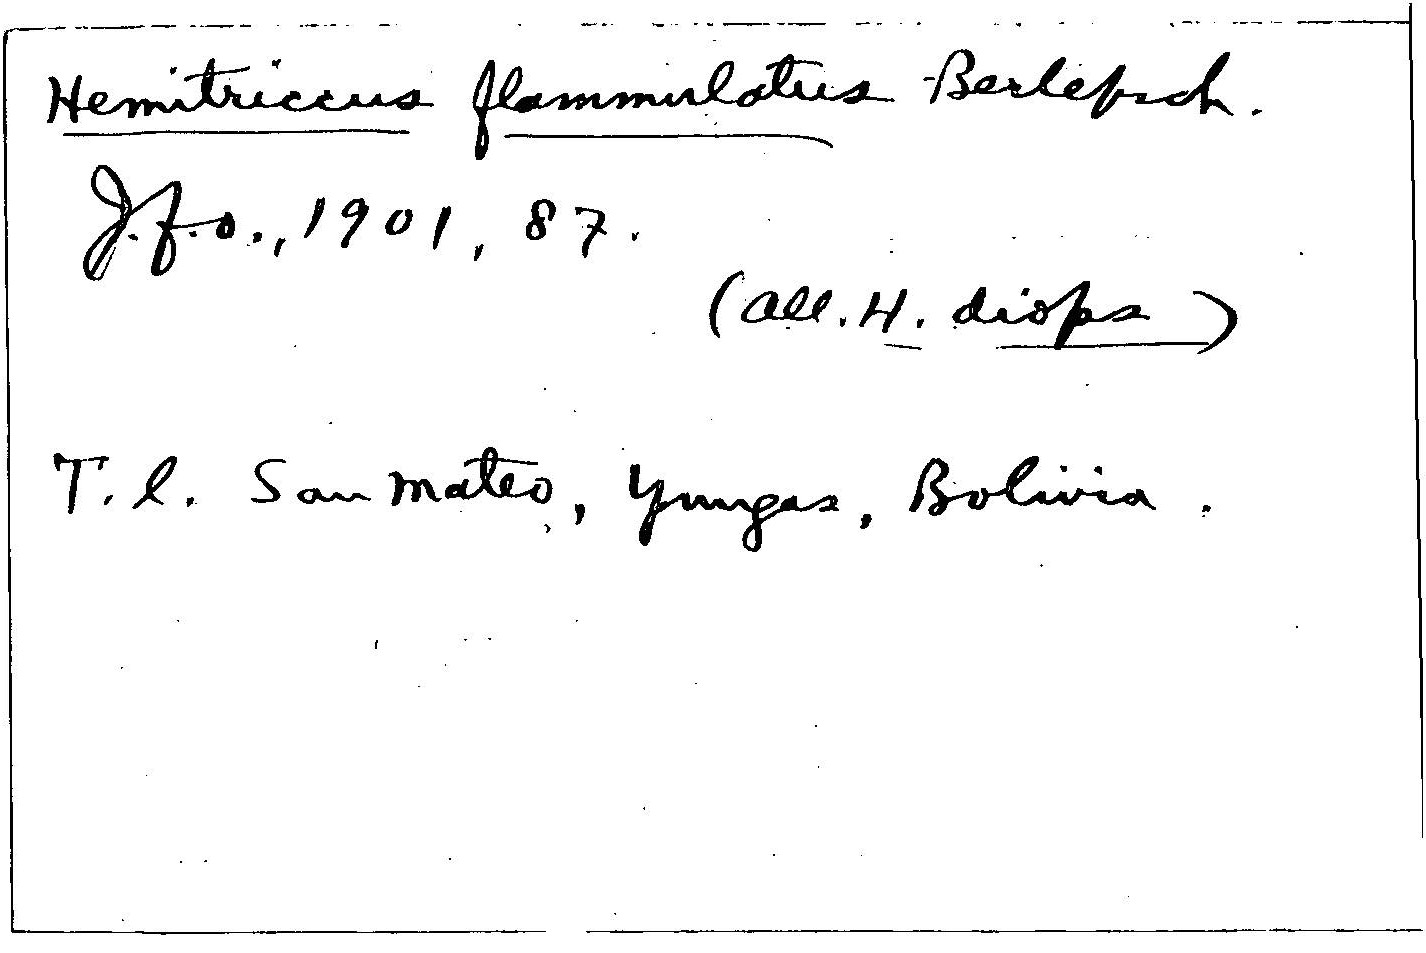 Hemitriccus flammulatus Berlepsch.
J.f.o., 1901, 87.
(all. H. diops)
T. l. San Mateo, Yungas, Bolivia.